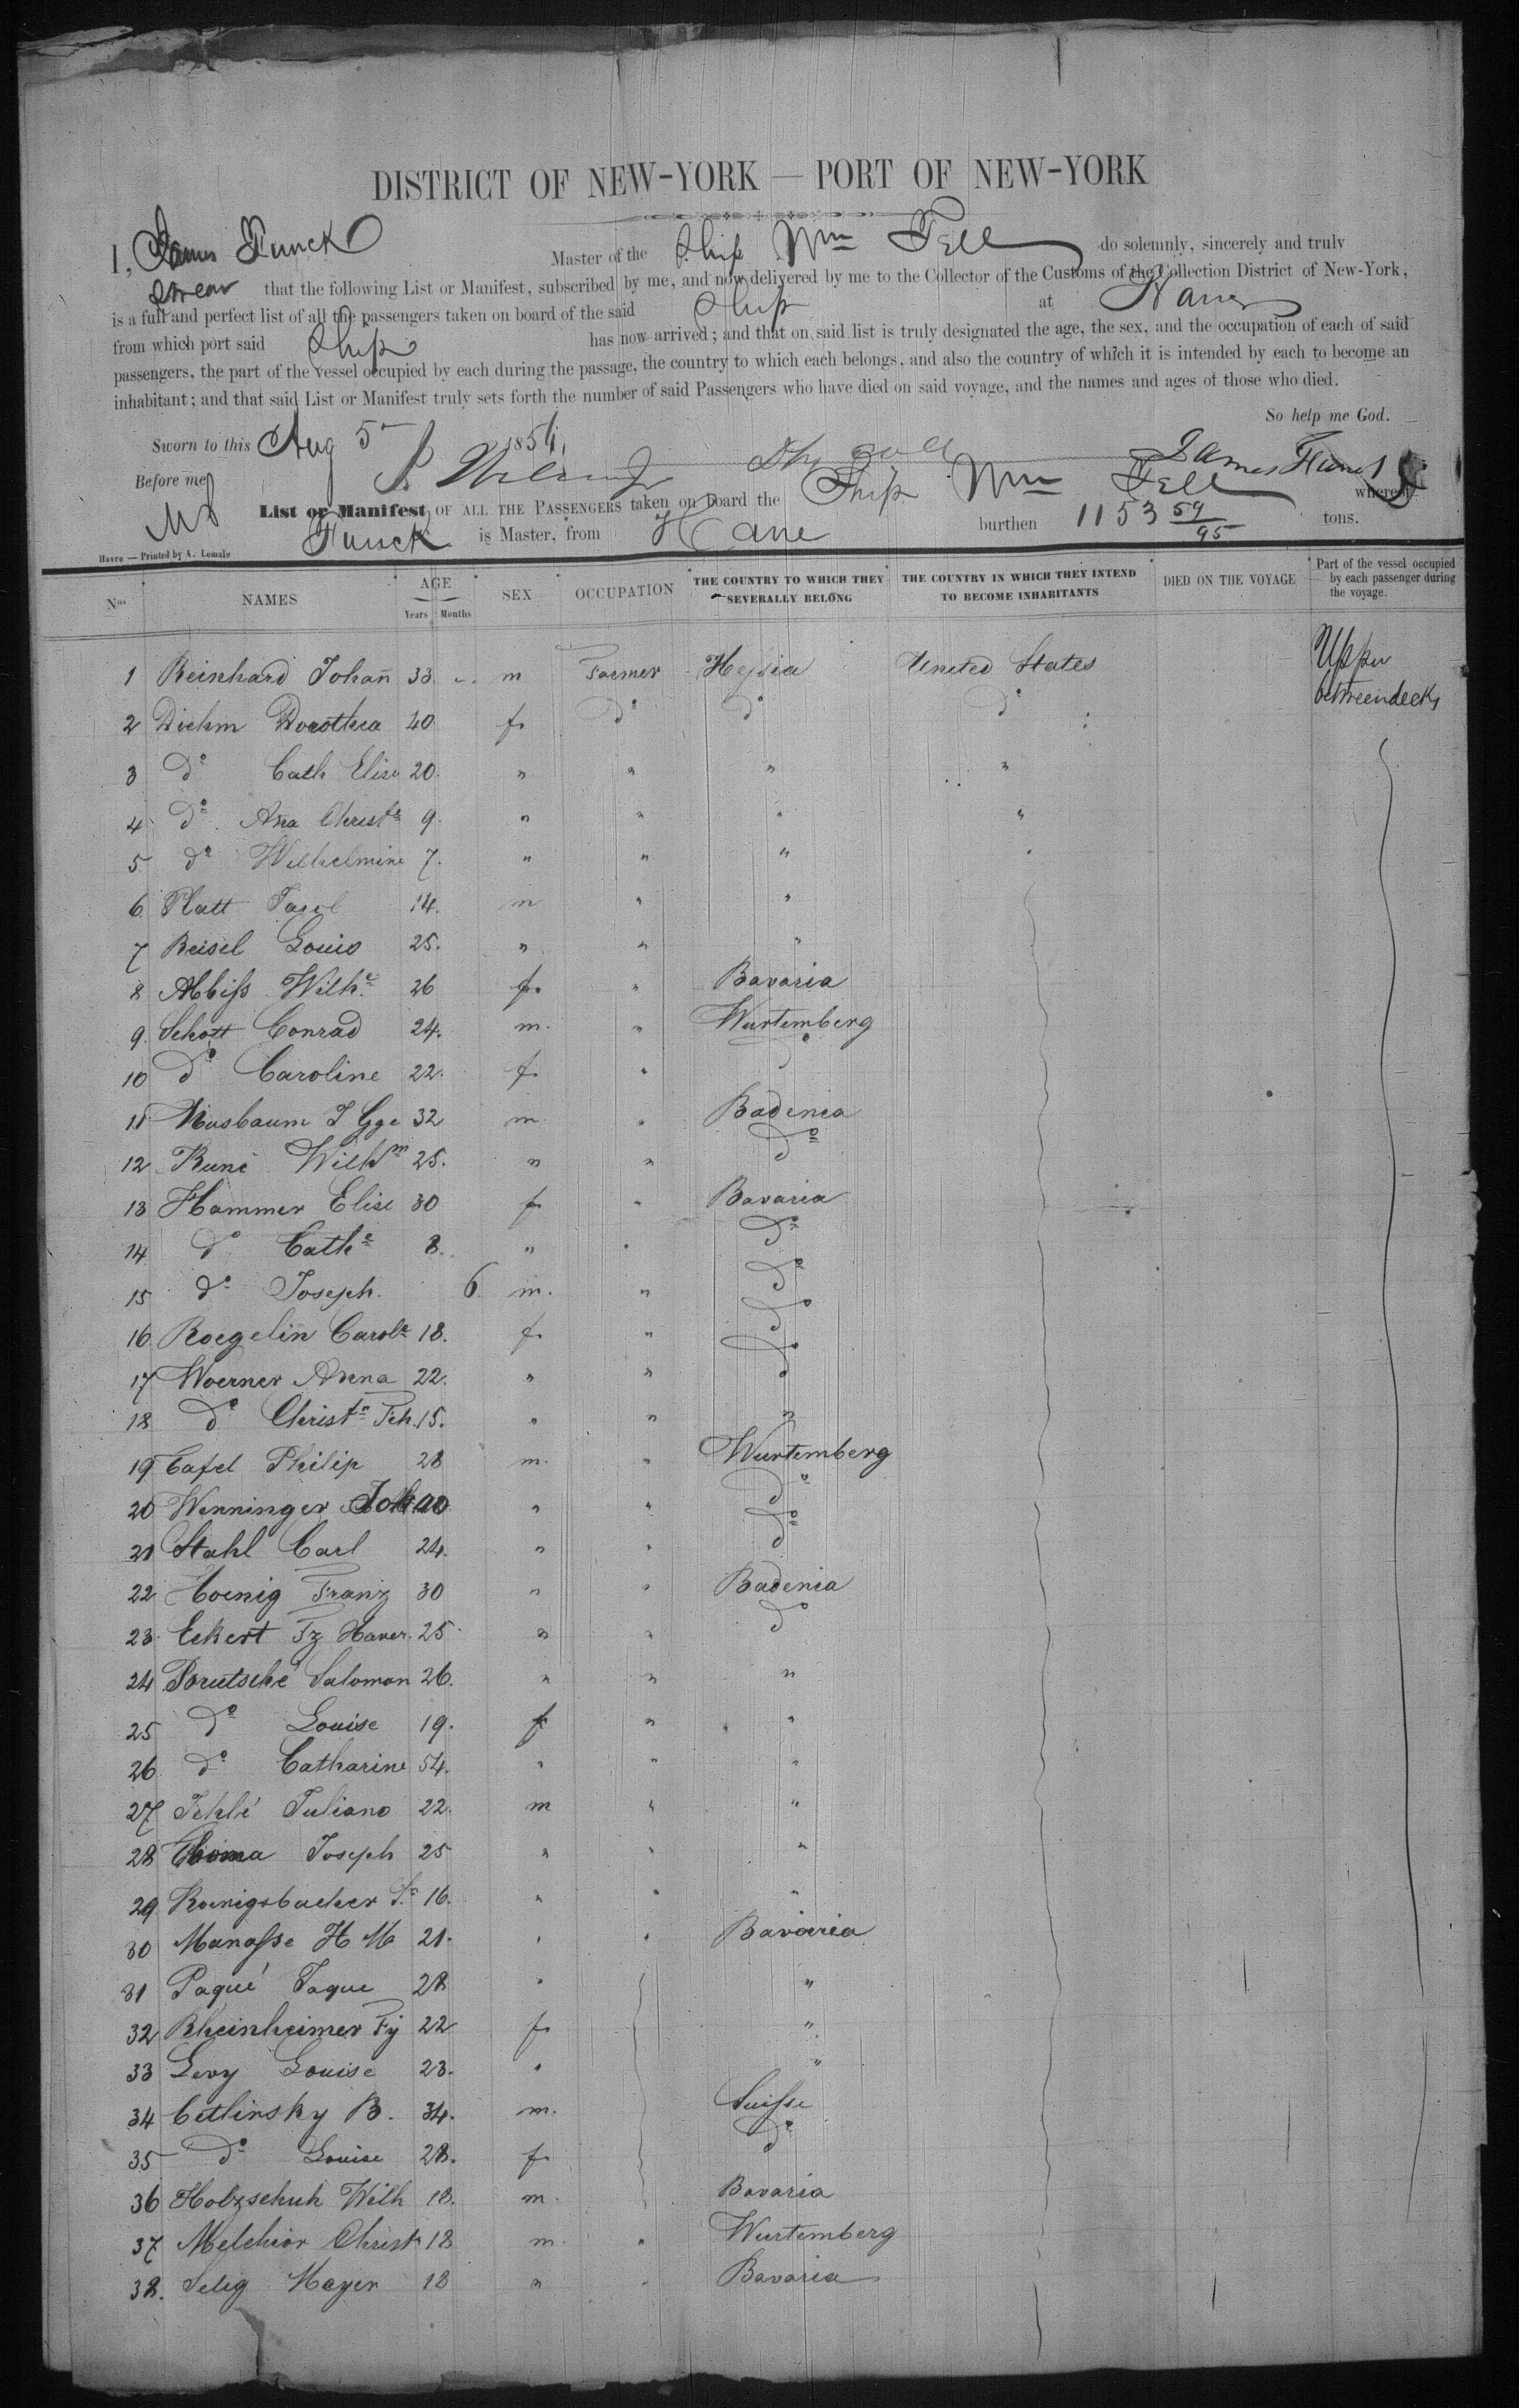 DISTRICT OF NEW-YORK — PORT OF NEW-YORK
I, James Funck Master of the Ship Wm Tell do solemnly, sincerely and truly
swear that the following List or Manifest, subscribed by me, and now delivered by me to the Collector of the Customs of the Collection District of New-York,
is a full and perfect list of all the passengers taken on board of the said Ship at Havre
from which port said Ship has now arrived; and that on said list is truly designated the age, the sex, and the occupation of each of said
passengers, the part of the vessel occupied by each during the passage, the country to which each belongs, and also the country of which it is intended by each to become an
inhabitant; and that said List or Manifest truly sets forth the number of said Passengers who have died on said voyage, and the names and ages of those who died.
So help me God.
Sworn to this Aug 5 1854
James Funck
Before me
List or Manifest OF ALL THE PASSENGERS taken on board the Ship Wm Tell whereof
Funck is Master, from Havre burthen 1153 59/95 tons.
Havre — Printed by A. Lemale
Nos NAMES AGE Years Months SEX OCCUPATION THE COUNTRY TO WHICH THEY SEVERALLY BELONG THE COUNTRY IN WHICH THEY INTEND TO BECOME INHABITANTS DIED ON THE VOYAGE Part of the vessel occupied by each passenger during the voyage.
1 Reinhard Johan̄ 33 m Farmer Hessia United States Upper
2 Diehm Dorothea 40 f do do do betweendecks
3 do Cath Elise 20 " " " "
4 do An̄a Christe 9 " " " "
5 do Wilhelmine 7 " " " "
6 Platt 14 m " "
7 Reisel Louis 25 " " "
8 Abbiss Wilhe 26 f " Bavaria
9 Schott Conrad 24 m " Wurtemberg
10 do Caroline 22 f " do
11 Nusbaum J Gge 32 m " Badenia
12 Wilhm 25 " " do
13 Hammer Elise 30 f " Bavaria
14 do Cathe 8 " " do
15 do Joseph 6 m " do
16 Roegelin Carole 18 f " do
17 Woerner 22 " " do
18 do Christe 15 " " "
19 Cafel Philip 28 m " Wurtemberg
20 Wenninger " " do
21 Stahl Carl 24 " " do
22 Hoenig Franz 30 " " Badenia
23 Eckert Fz Xaver 25 " " do
24 Brutsché Salomon 26 " " "
25 do Louise 19 f " "
26 do Catharine 54 " " "
27 Juliano 22 m " "
28 Thoma Joseph 25 " " "
29 Koenigsbacher 16 " " "
30 Manasse H M 21 " " Bavaria
31 Paqué Jaque 28 " "
32 Rheinheimer 22 f "
33 Levy Louise 23 " "
34 Cetlinsky B. 34 m Suisse
35 do Louise 28 f do
36 Holzschuh Wilh 18 m Bavaria
37 Melchior Christ 18 m " Wurtemberg
38 Selig Mayer 18 " " Bavaria